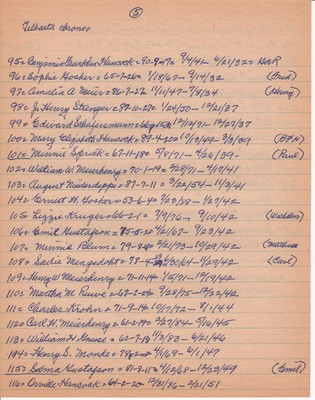 (5)
Gilberts chonor
95= Benjamin Franklin Hancock= 90-9-17= 9/4/41- 6/21/32=
96= Sophie Hosker= 65-7-26= 1/18/67- 9/14/32 (Fred)
97= Amalia A. Meier= 86-7-26 11/11/47- 7/8/34 (Henry)
98= J. Henry Stenger= 87-10-27= 1/24/50- 12/21/37
99= Edward Schafersmann= 12/19/71- 12/27/37
100= Mary Elizabeth Hancock= 89-4-20= 10/13/49- 3/3/39 (B.F.H)
101= Minnie Sprick= 67-11-18= 5/8/71- 4/26/39- (Paul)
102= William W. Meierhenry= 70-1-19= 2/28/71- 4/17/41
103= August Niederdeppe= 87-7-11= 3/22/54- 11/3/41
104= Ernest H. Hosker= 53-6-4= 7/23/88- 1/27/42
105= Lizzie Kruger= 66-2-1= 7/9/76- 9/10/42
106= Emil Gustafson= 75-5-20 2/1/67- 7/23/42
107= Minnie Blum= 79-8- 2/21/73- 10/29/42
108= Sadie Mengedoht= 78-4- 30/64- 4/29/42 (Carl)
109= Henry W. Meierhenry= 71-11-14= 1/5/71- 12/19/42
110= Martha M. Ruwe= 67-2-24= 9/28/75- 12/22/42
111= Charles Krohn= 71-9-14= 10/7/72- 8/1/44
112= Carl H. Meierhenry= 61-2-19= 2/27/84- 5/16/45
113= William H. 62-7-18 11/3/83- 6/21/46
114= Henry S. Monke= 78= 4/1/69- 6/1/47
115= Edma Gustafson= 81-8-11= 4/12/68- 12/23/49 (Emil)
116= Orville Hancock= 64-2-20= 12/31/86- 2/21/51